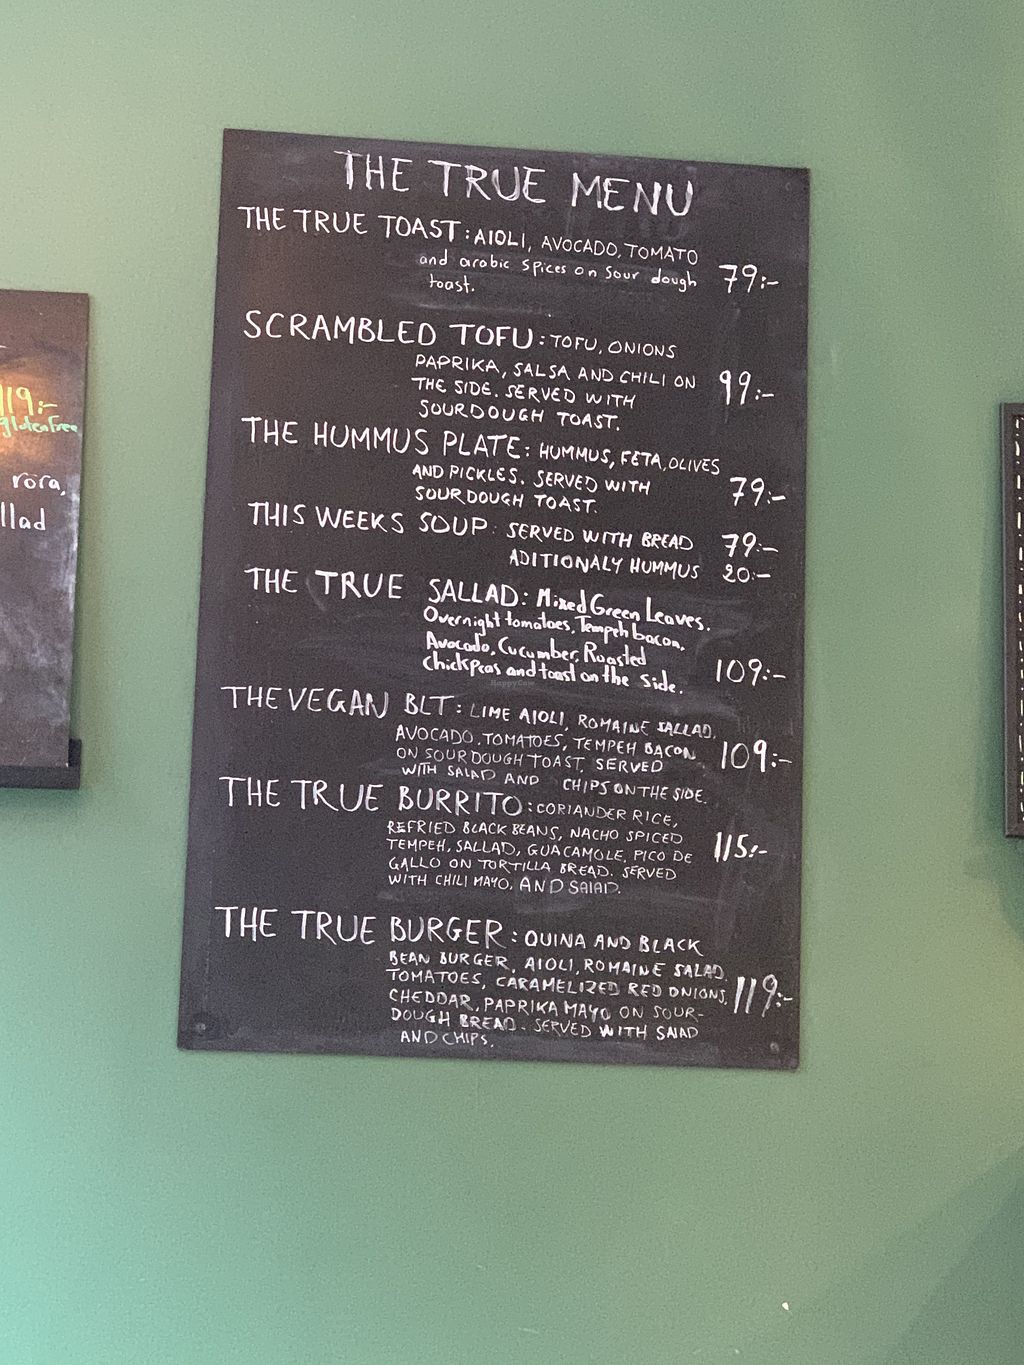 THE TRUE MENU
THE TRUE TOAST: AIOLI, AVOCADO, TOMATO
and arabic spices on sour dough 79:-
toast.
SCRAMBLED TOFU: TOFU, ONIONS
PAPRIKA, SALSA AND CHILI ON 99:-
THE SIDE. SERVED WITH
SOURDOUGH TOAST.
THE HUMMUS PLATE: HUMMUS, FETA, OLIVES
AND PICKLES. SERVED WITH 79:-
SOURDOUGH TOAST.
THIS WEEKS SOUP: SERVED WITH BREAD 79:-
ADITIONALY HUMMUS 20:-
THE TRUE SALLAD: Mixed Green Leaves.
Overnight tomatoes, Tempeh bacon,
Avocado, Cucumber, Roasted
Chickpeas and toast on the side. 109:-
THE VEGAN BLT: LIME AIOLI, ROMAINE SALLAD,
AVOCADO, TOMATOES, TEMPEH BACON 109:-
ON SOURDOUGH TOAST. SERVED
WITH SALAD AND CHIPS ON THE SIDE.
THE TRUE BURRITO: CORIANDER RICE,
REFRIED BLACK BEANS, NACHO SPICED
TEMPEH, SALLAD, GUACAMOLE, PICO DE 115:-
GALLO ON TORTILLA BREAD. SERVED
WITH CHILI MAYO. AND SALAD.
THE TRUE BURGER: QUINA AND BLACK
BEAN BURGER, AIOLI, ROMAINE SALAD,
TOMATOES, CARAMELIZED RED ONIONS, 119:-
CHEDDAR, PAPRIKA MAYO ON SOUR-
DOUGH BREAD. SERVED WITH SALAD
AND CHIPS.
119:-
glutenfree
rora,
llad
HappyCow